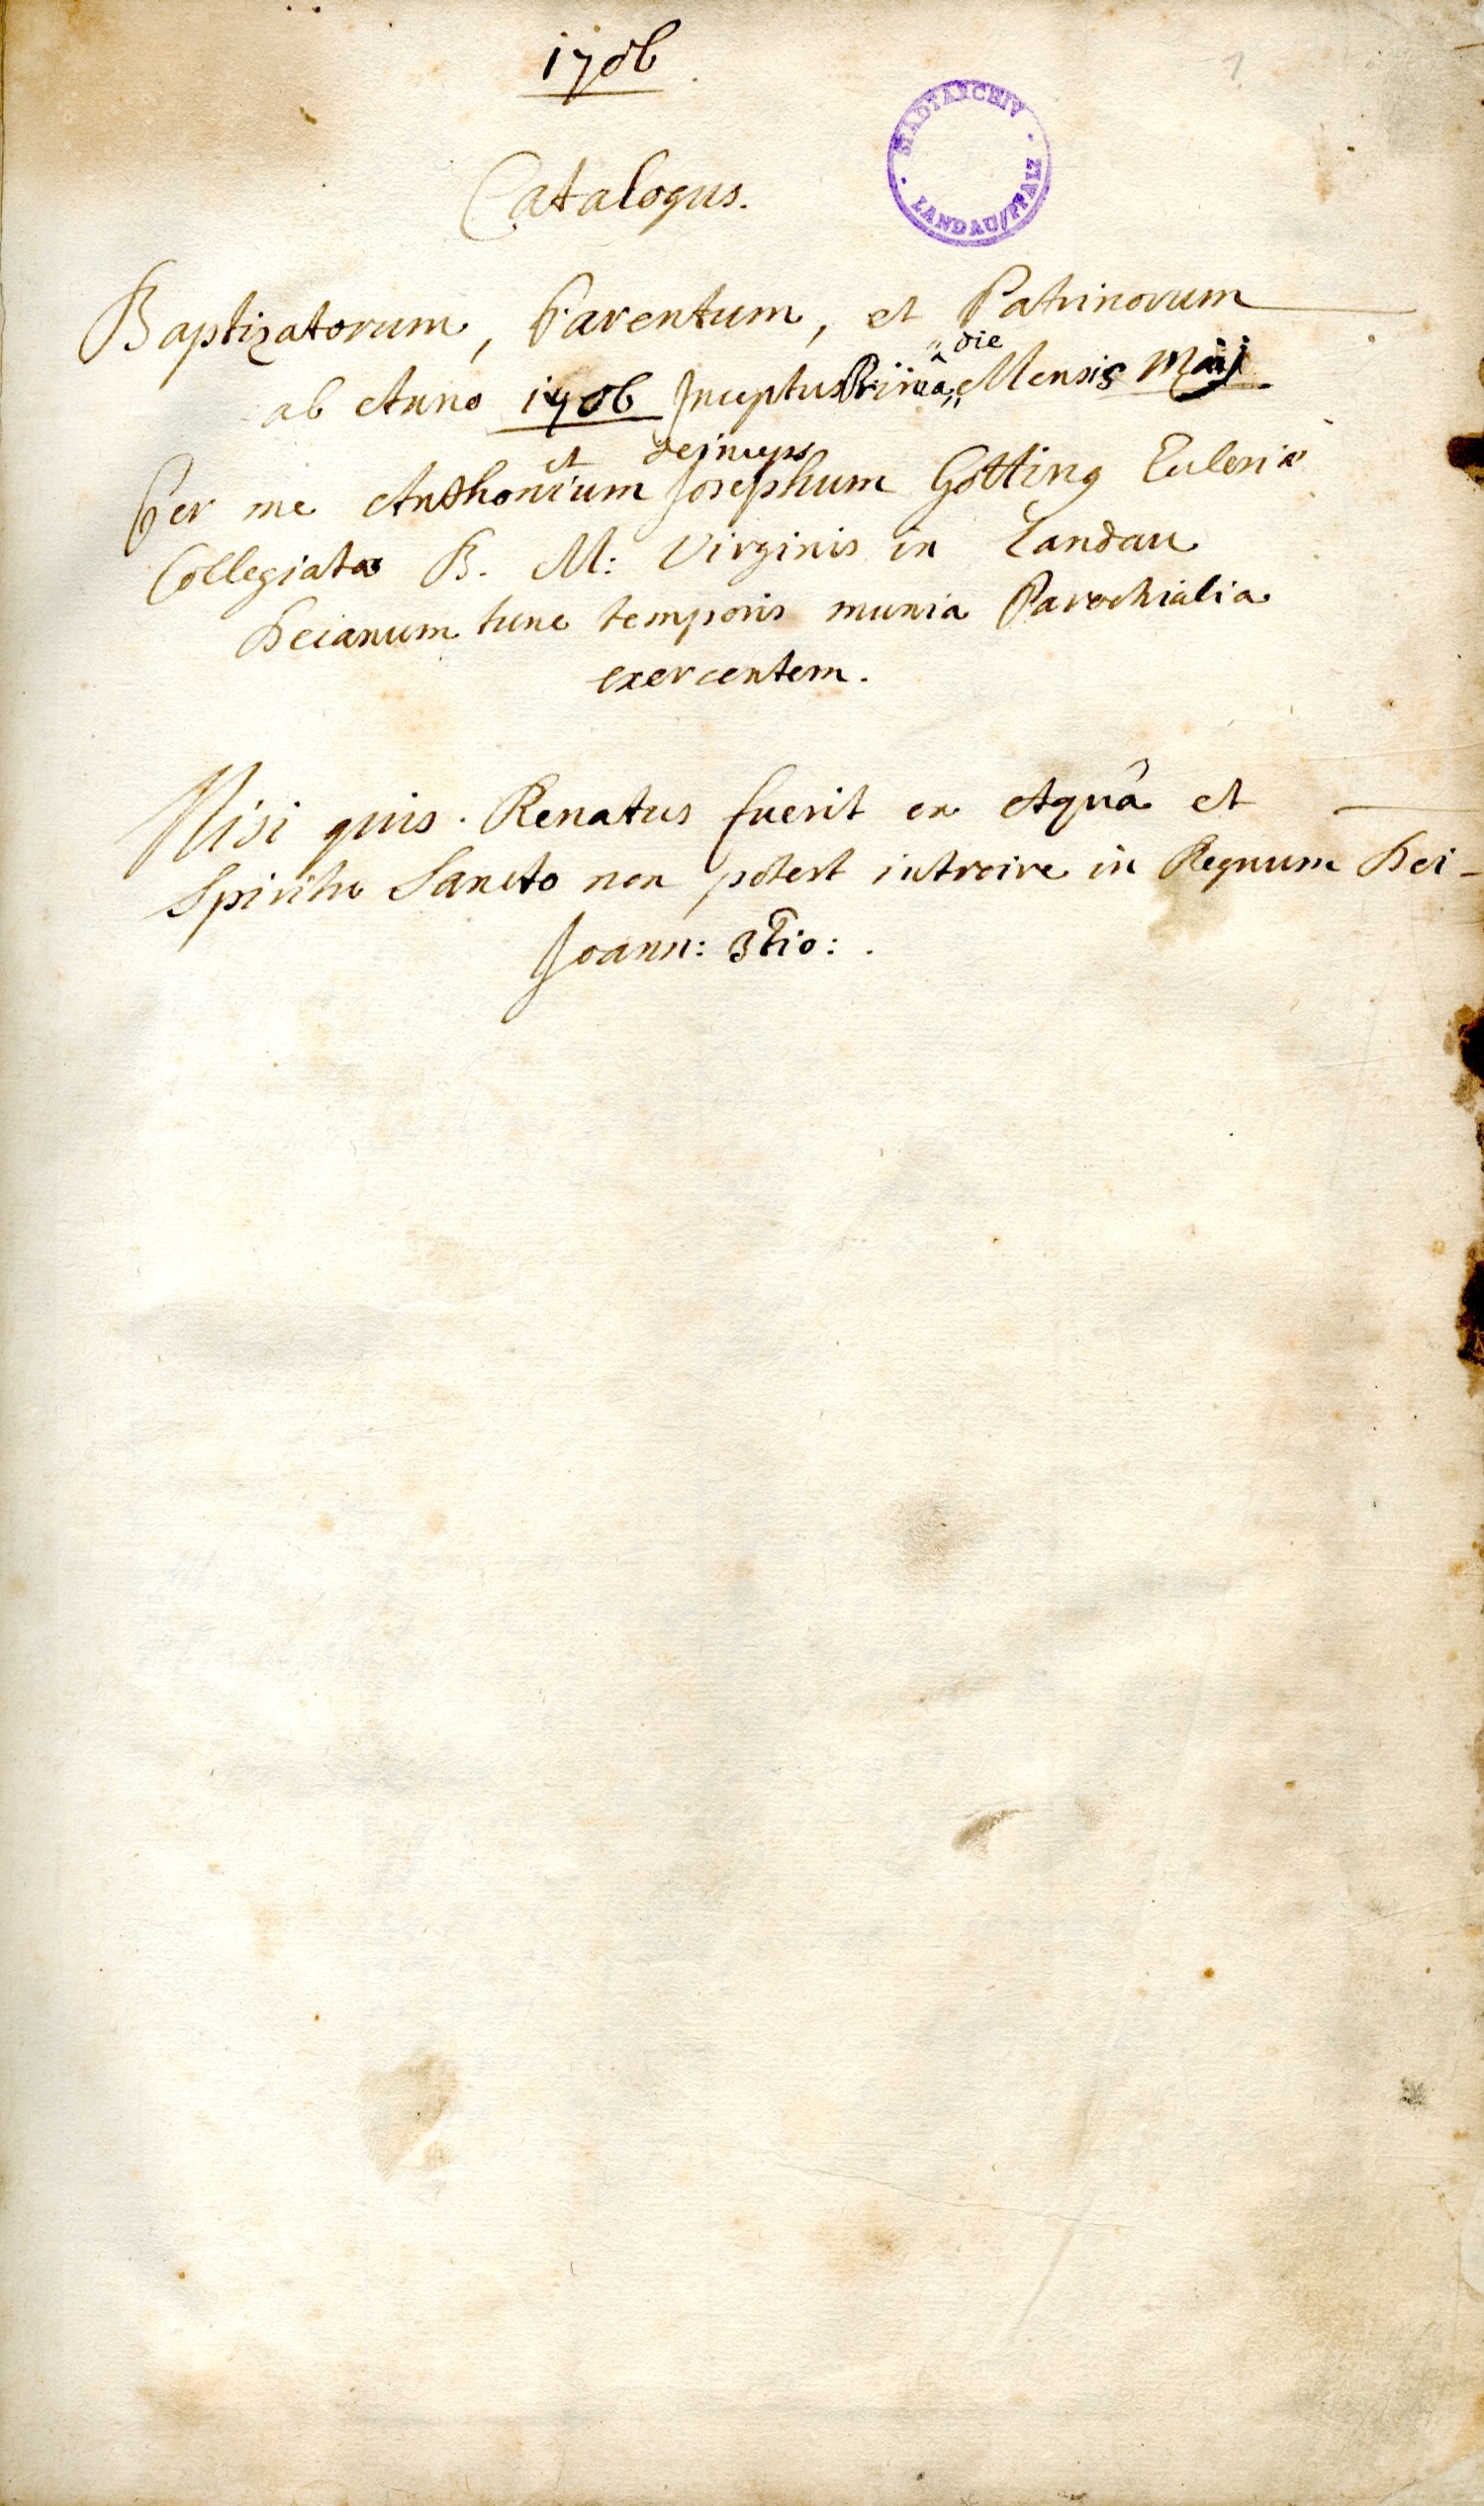 1706
1
STADTARCHIV
LANDAU/PFALZ
Catalogus.
Baptizatorum, Parentum, et Patrinorum
die
ab Anno 1706 Inceptus Primâ Mensis Maij
et deinceps
Per me Anthonium Josephum Götting Ecclesiæ
Collegiatæ B. M: Virginis in Landau
Decanum tunc temporis munia Parochialia
exercentem.
Nisi quis. Renatus fuerit ex Aquâ et
Spiritu Sancto non potest introire in Regnum Dei-
Joann: 3tio:.